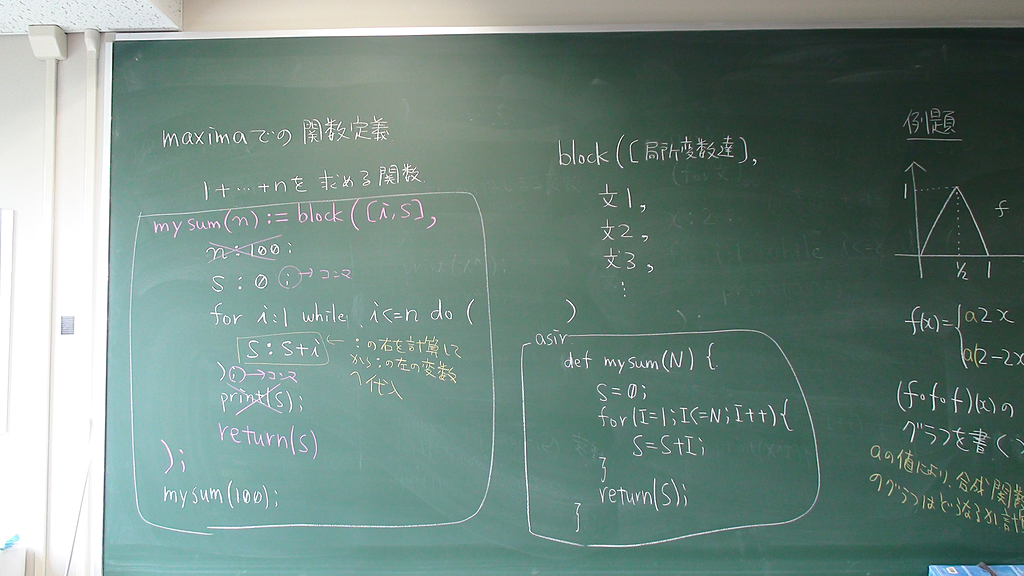 maximaでの 関数定義
1+…+nを 求める関数
mysum(n) := block([i,s],
n:100;
s:0; → コンマ
for i:1 while i<=n do (
s:s+i ← :の右を計算して
から:の左の変数
へ代入
); → コンマ
print(s);
return(s)
);
mysum(100);
block([局所変数達],
文1,
文2,
文3,
⋮
)
asir
def mysum(N) {
S=0;
for(I=1;I<=N;I++){
S=S+I;
}
return(S);
}
例題
1
f
1/2 1
f(x)={ a2x
a(2-2x
(f∘f∘f)(x)の
グラフを書く
aの値により、合成関数
のグラフはどうなるか計